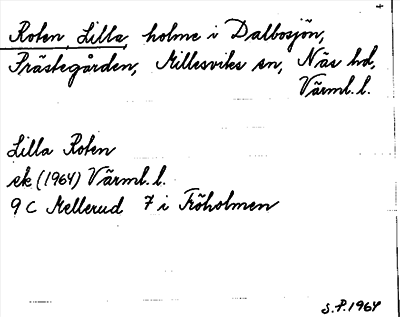 Roten, Lilla, holme i Dalbosjön,
Prästegården, Millesviks sn, Näs hd,
Värml. l.
Lilla Roten
ek (1964) Värml. l.
9 C Mellerud 7 i Fröholmen
S.P. 1964